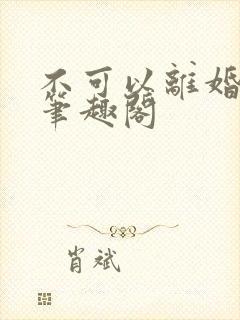 不可以離婚
筆趣閣
肖斌